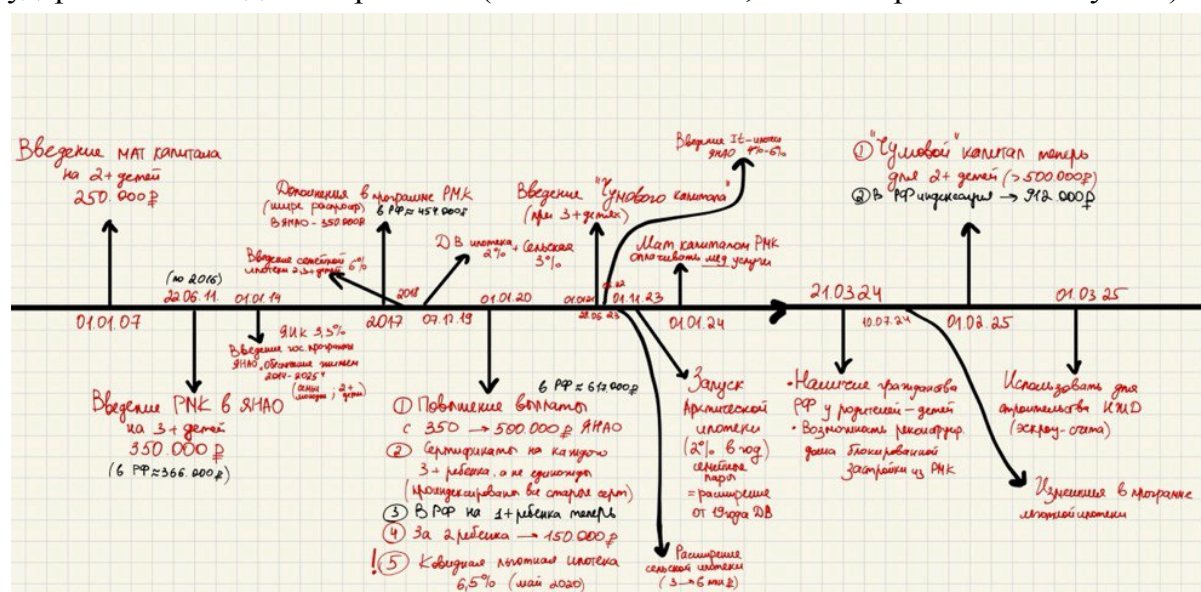 Введение мат капитала
на 2+ детей
250.000₽
01.01.07
(по 2016)
22.06.11
Введение РМК в ЯНАО
на 3+ детей
350.000₽
(в РФ≈366.000₽)
01.01.14
ЯИК 3,5%
Введение гос. программы
ЯНАО "Обеспечение жильем
2014-2025"
Введение семейной 6%
ипотеки 2,3+ детей
Дополнения в программе РМК
в РФ≈454.000₽
В ЯНАО - 350.000₽
2017
2018
ДВ ипотека + Сельская
2% 3%
07.12.19
01.01.20
① Повышение выплаты
с 350 → 500.000₽ ЯНАО
② Сертификаты на каждого
3+ ребенка, а не единожды
(проиндексированы все старые серт)
③ В РФ на 1+ребенка теперь
④ За 2 ребенка → 150.000₽
! ⑤ Ковидная льготная ипотека
6,5% (май 2020)
Введение "Чумового капитала"
(при 3+детях)
01.01.21
Введение It-ипотеки
ЯНАО
Расширение
сельской ипотеки
(3→6 млн ₽)
01.11.23
Запуск
Арктической
ипотеки
(2% в год)
семейные
пары
=расширение
от 19года ДВ
Мат капиталом РМК
оплачивать мед услуги
01.01.24
21.03.24
• Наличие гражданства
РФ у родителей-детей
• Возможность реконструир.
дома блокированной
застройки из РМК
10.07.24
Изменения в программе
льготной ипотеки
① "Чумовой" капитал теперь
для 2+ детей (>500.000₽)
② В РФ индексация → 912.000₽
01.02.25
01.03.25
Использовать для
строительства ИЖД
(эскроу-счета)